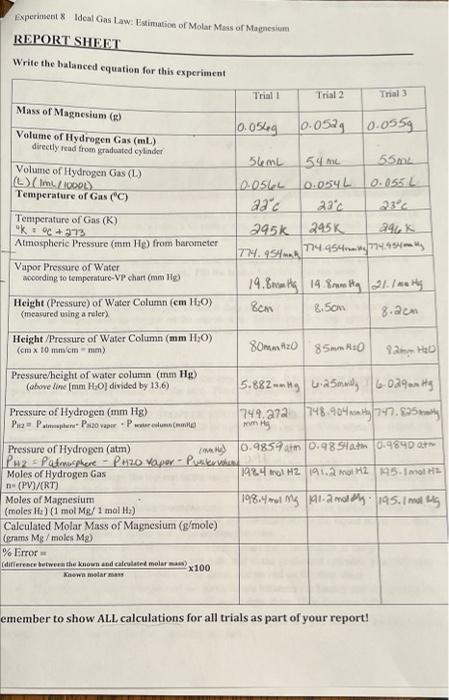 Experiment 8 Ideal Gas Law: Estimation of Molar Mass of Magnesium
REPORT SHEET
Write the balanced equation for this experiment
Trial 1 Trial 2 Trial 3
Mass of Magnesium (g) 0.0529 0.055g
Volume of Hydrogen Gas (mL)
directly read from graduated cylinder 56mL 54 mL 55mL
Volume of Hydrogen Gas (L)
(L)(1mL/1000L) 0.056L 0.054L 0.055L
Temperature of Gas (°C) 22°C 22°C 23°C
Temperature of Gas (K)
°K = °C + 273 295K 295K 296 K
Atmospheric Pressure (mm Hg) from barometer 774.954mmHg 774.954mmHg 774.954mmHg
Vapor Pressure of Water
according to temperature-VP chart (mm Hg) 19.8mmHg 19.8mmHg 21.1mmHg
Height (Pressure) of Water Column (cm H₂O)
(measured using a ruler) 8cm 8.5cm 8.2cm
Height /Pressure of Water Column (mm H₂O)
(cm x 10 mm/cm = mm) 80mmH2O 85mmH2O 82mm H2O
Pressure/height of water column (mm Hg)
(above line [mm H₂O] divided by 13.6) 5.882mmHg 6.25mmHg 6.029mmHg
Pressure of Hydrogen (mm Hg) 749.272 748.904mmHg 747.825mmHg
P H2 = P atmosphere - P H2O vapor - P water column (mmHg) mm Hg
Pressure of Hydrogen (atm) (mmHg) 0.9859atm 0.9854atm 0.9840atm
PH2 = Patmosphere - PH2O vapor - Pwatercolumn
Moles of Hydrogen Gas 198.4 mol H2 191.2 mol H2 195.1mol H2
n= (PV)/(RT)
Moles of Magnesium 198.4mol Mg 191.2mol Mg 195.1mol Mg
(moles H₂) (1 mol Mg/ 1 mol H₂)
Calculated Molar Mass of Magnesium (g/mole)
(grams Mg / moles Mg)
% Error =
(difference between the known and calculated molar mass) x100
Known molar mass
emember to show ALL calculations for all trials as part of your report!